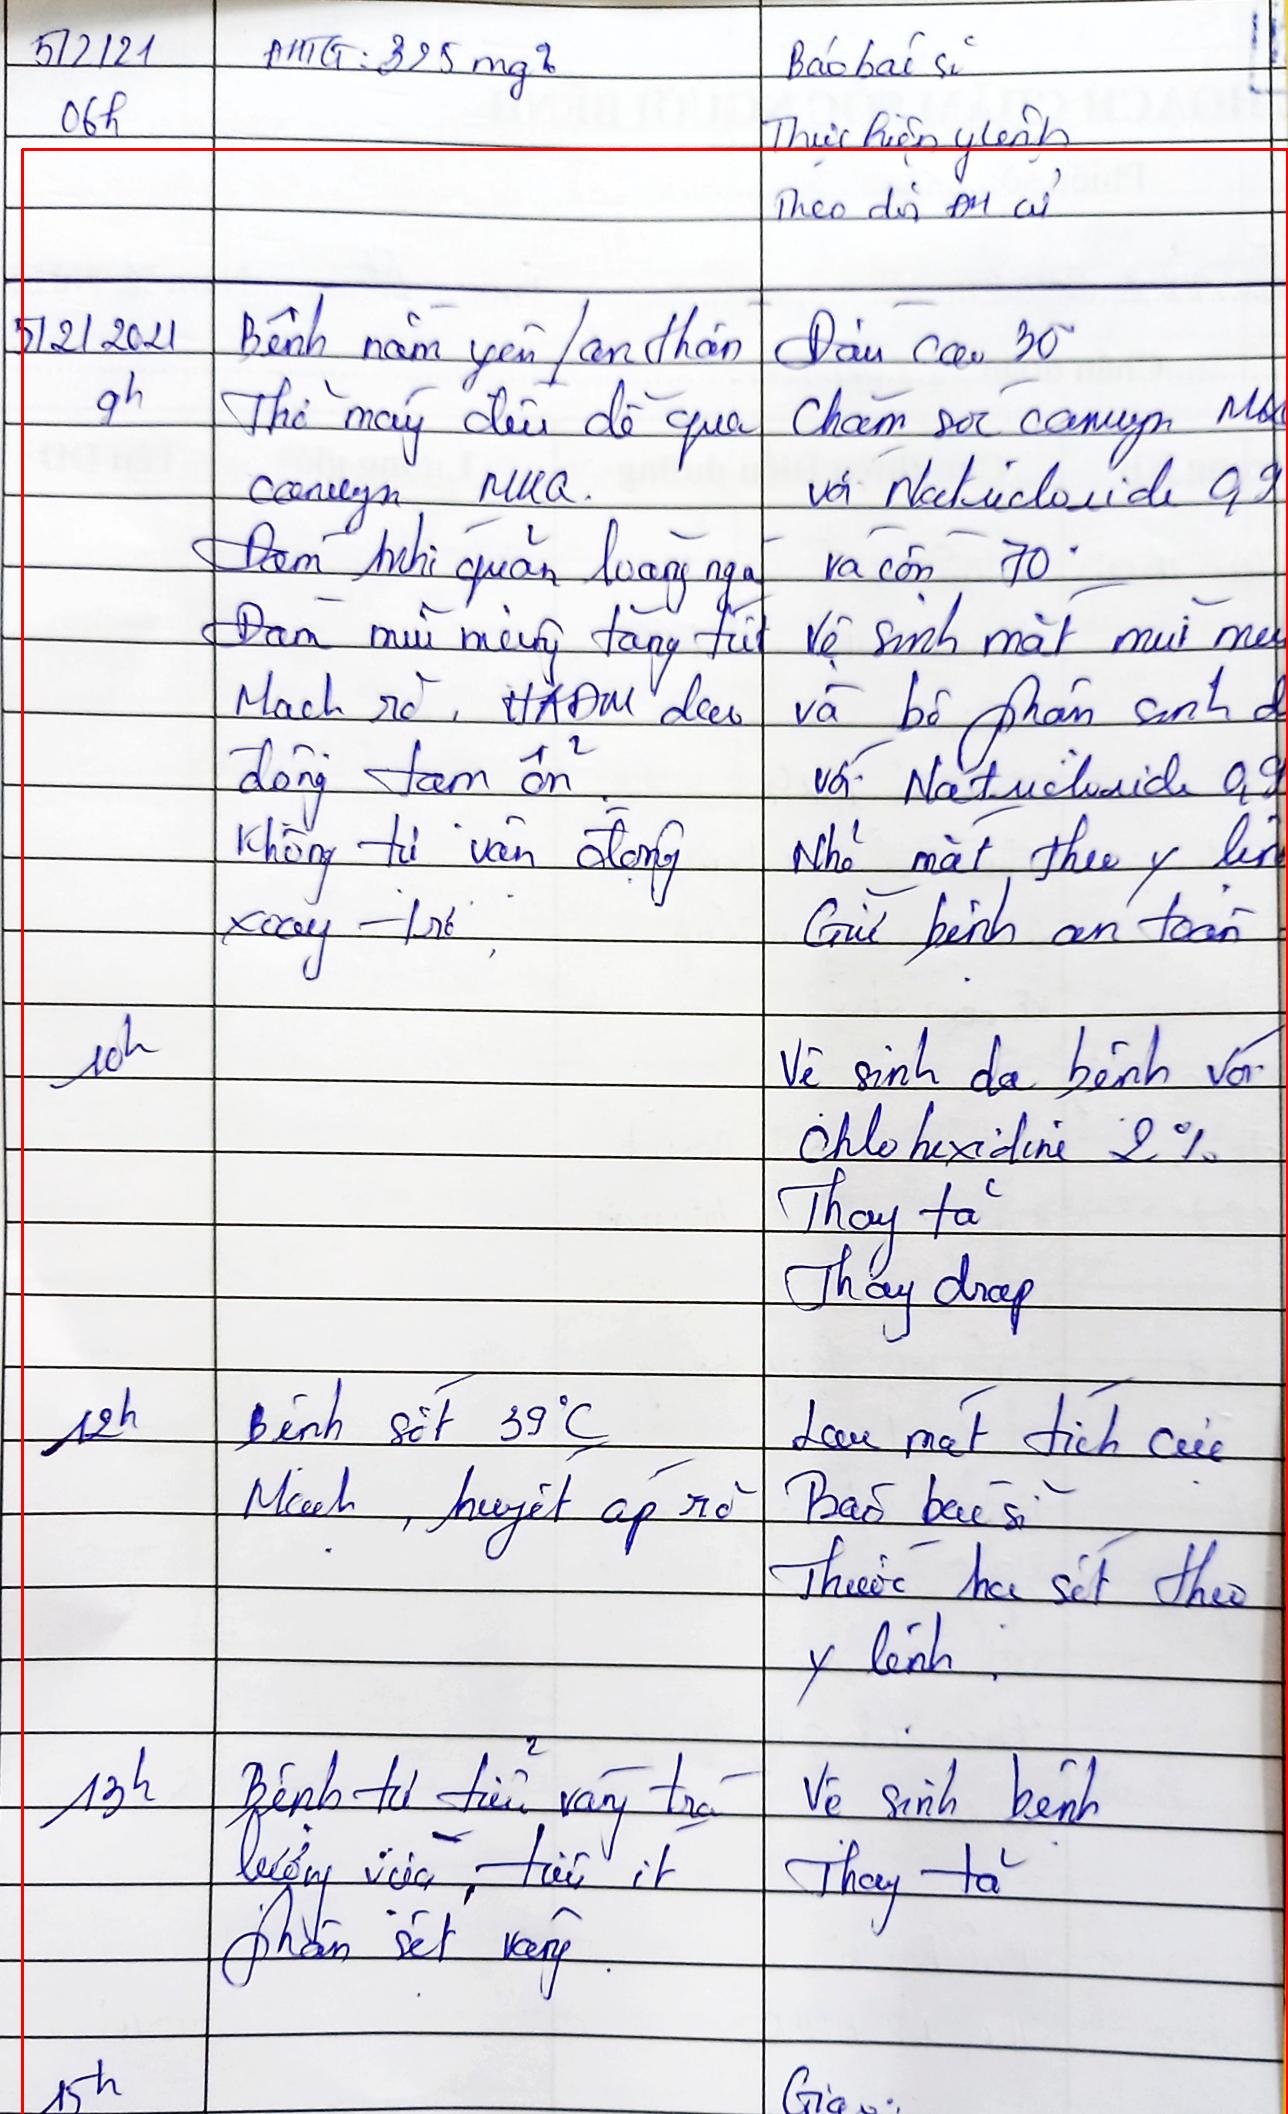 5/2/21
06h
ĐHTG: 325 mg%
Báo bác sĩ
Thực hiện y lệnh
Theo dõi ĐH cũ
5/2/2021
9h
Bệnh nằm yên / an thần
Thở máy đều dễ qua
canuyn MKQ.
Đàm khí quản loãng ngà
Đàm mũi miệng
Mạch rõ, HAĐM dao
động tạm ổn
Không tự vận động
xoay trở.
Đầu cao 30°
Chăm sóc canuyn
với Natricloride 0,9
và cồn 70°
Vệ sinh mắt mũi
và bộ phận sinh d
với Natricloride 0,9
Nhỏ mắt theo y lện
Giữ bệnh an toàn
10h
Vệ sinh da bệnh với
Chlohexidine 2%
Thay tã
Thay drap
12h
Bệnh sốt 39°C
Mạch, huyết áp rõ
Lau mát tích cực
Báo bác sĩ
Thuốc hạ sốt theo
y lệnh.
13h
Bệnh tự tiểu vàng trà
lượng vừa, tiêu ít
phân sệt vàng.
Vệ sinh bệnh
Thay tã
15h